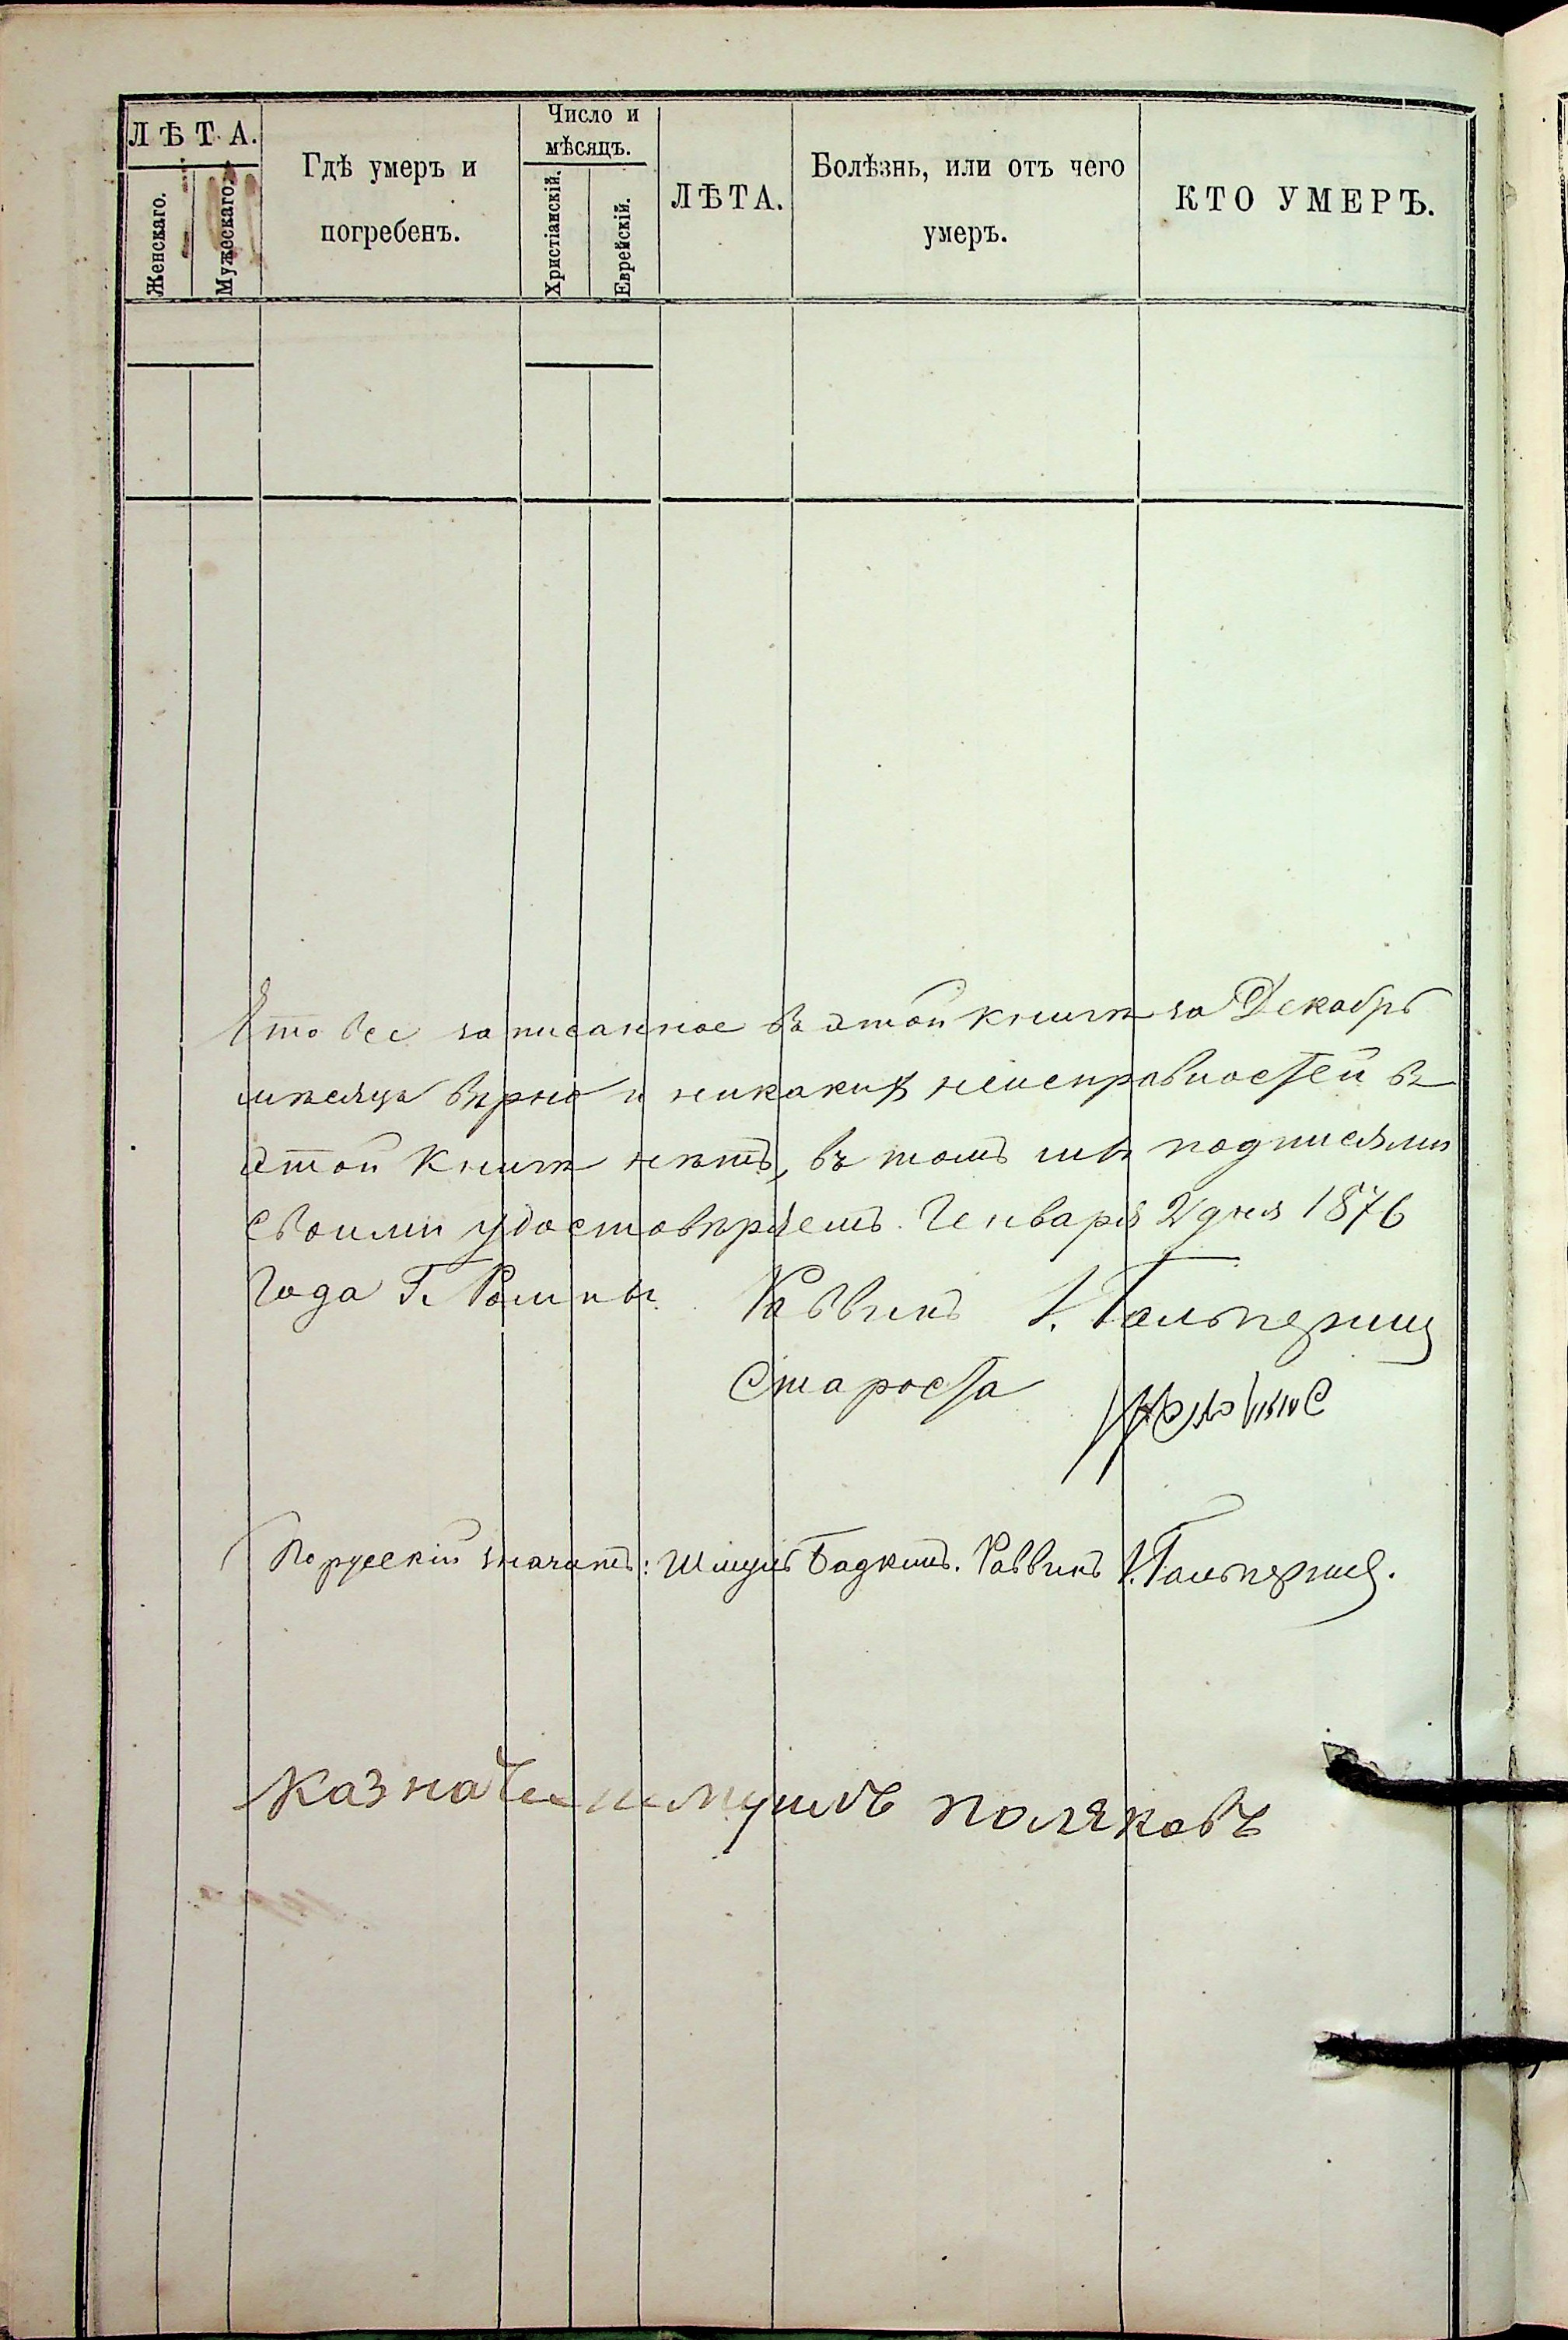 ЛѢТА.
Женскаго.
Мужескаго.
Гдѣ умеръ и
погребенъ.
Число и
мѣсяцъ.
Христіанскій.
Еврейскій.
ЛѢТА.
Болѣзнь, или отъ чего
умеръ.
КТО УМЕРЪ.
Что все записанное въ этой книгѣ за Декабрь
мѣсяцъ вѣрно и никакихъ неисправностей въ
этой книгѣ нѣтъ, въ томъ мы подписями
своими удостовѣряемъ. Генваря 2 дня 1876
года Г. Ромны. Раввинъ І. Гальперинъ
Староста
По русскій значитъ: Шмуль Бадкинъ. Раввинъ І. Гальперинъ.
Казначе Шмуилъ Поляковъ